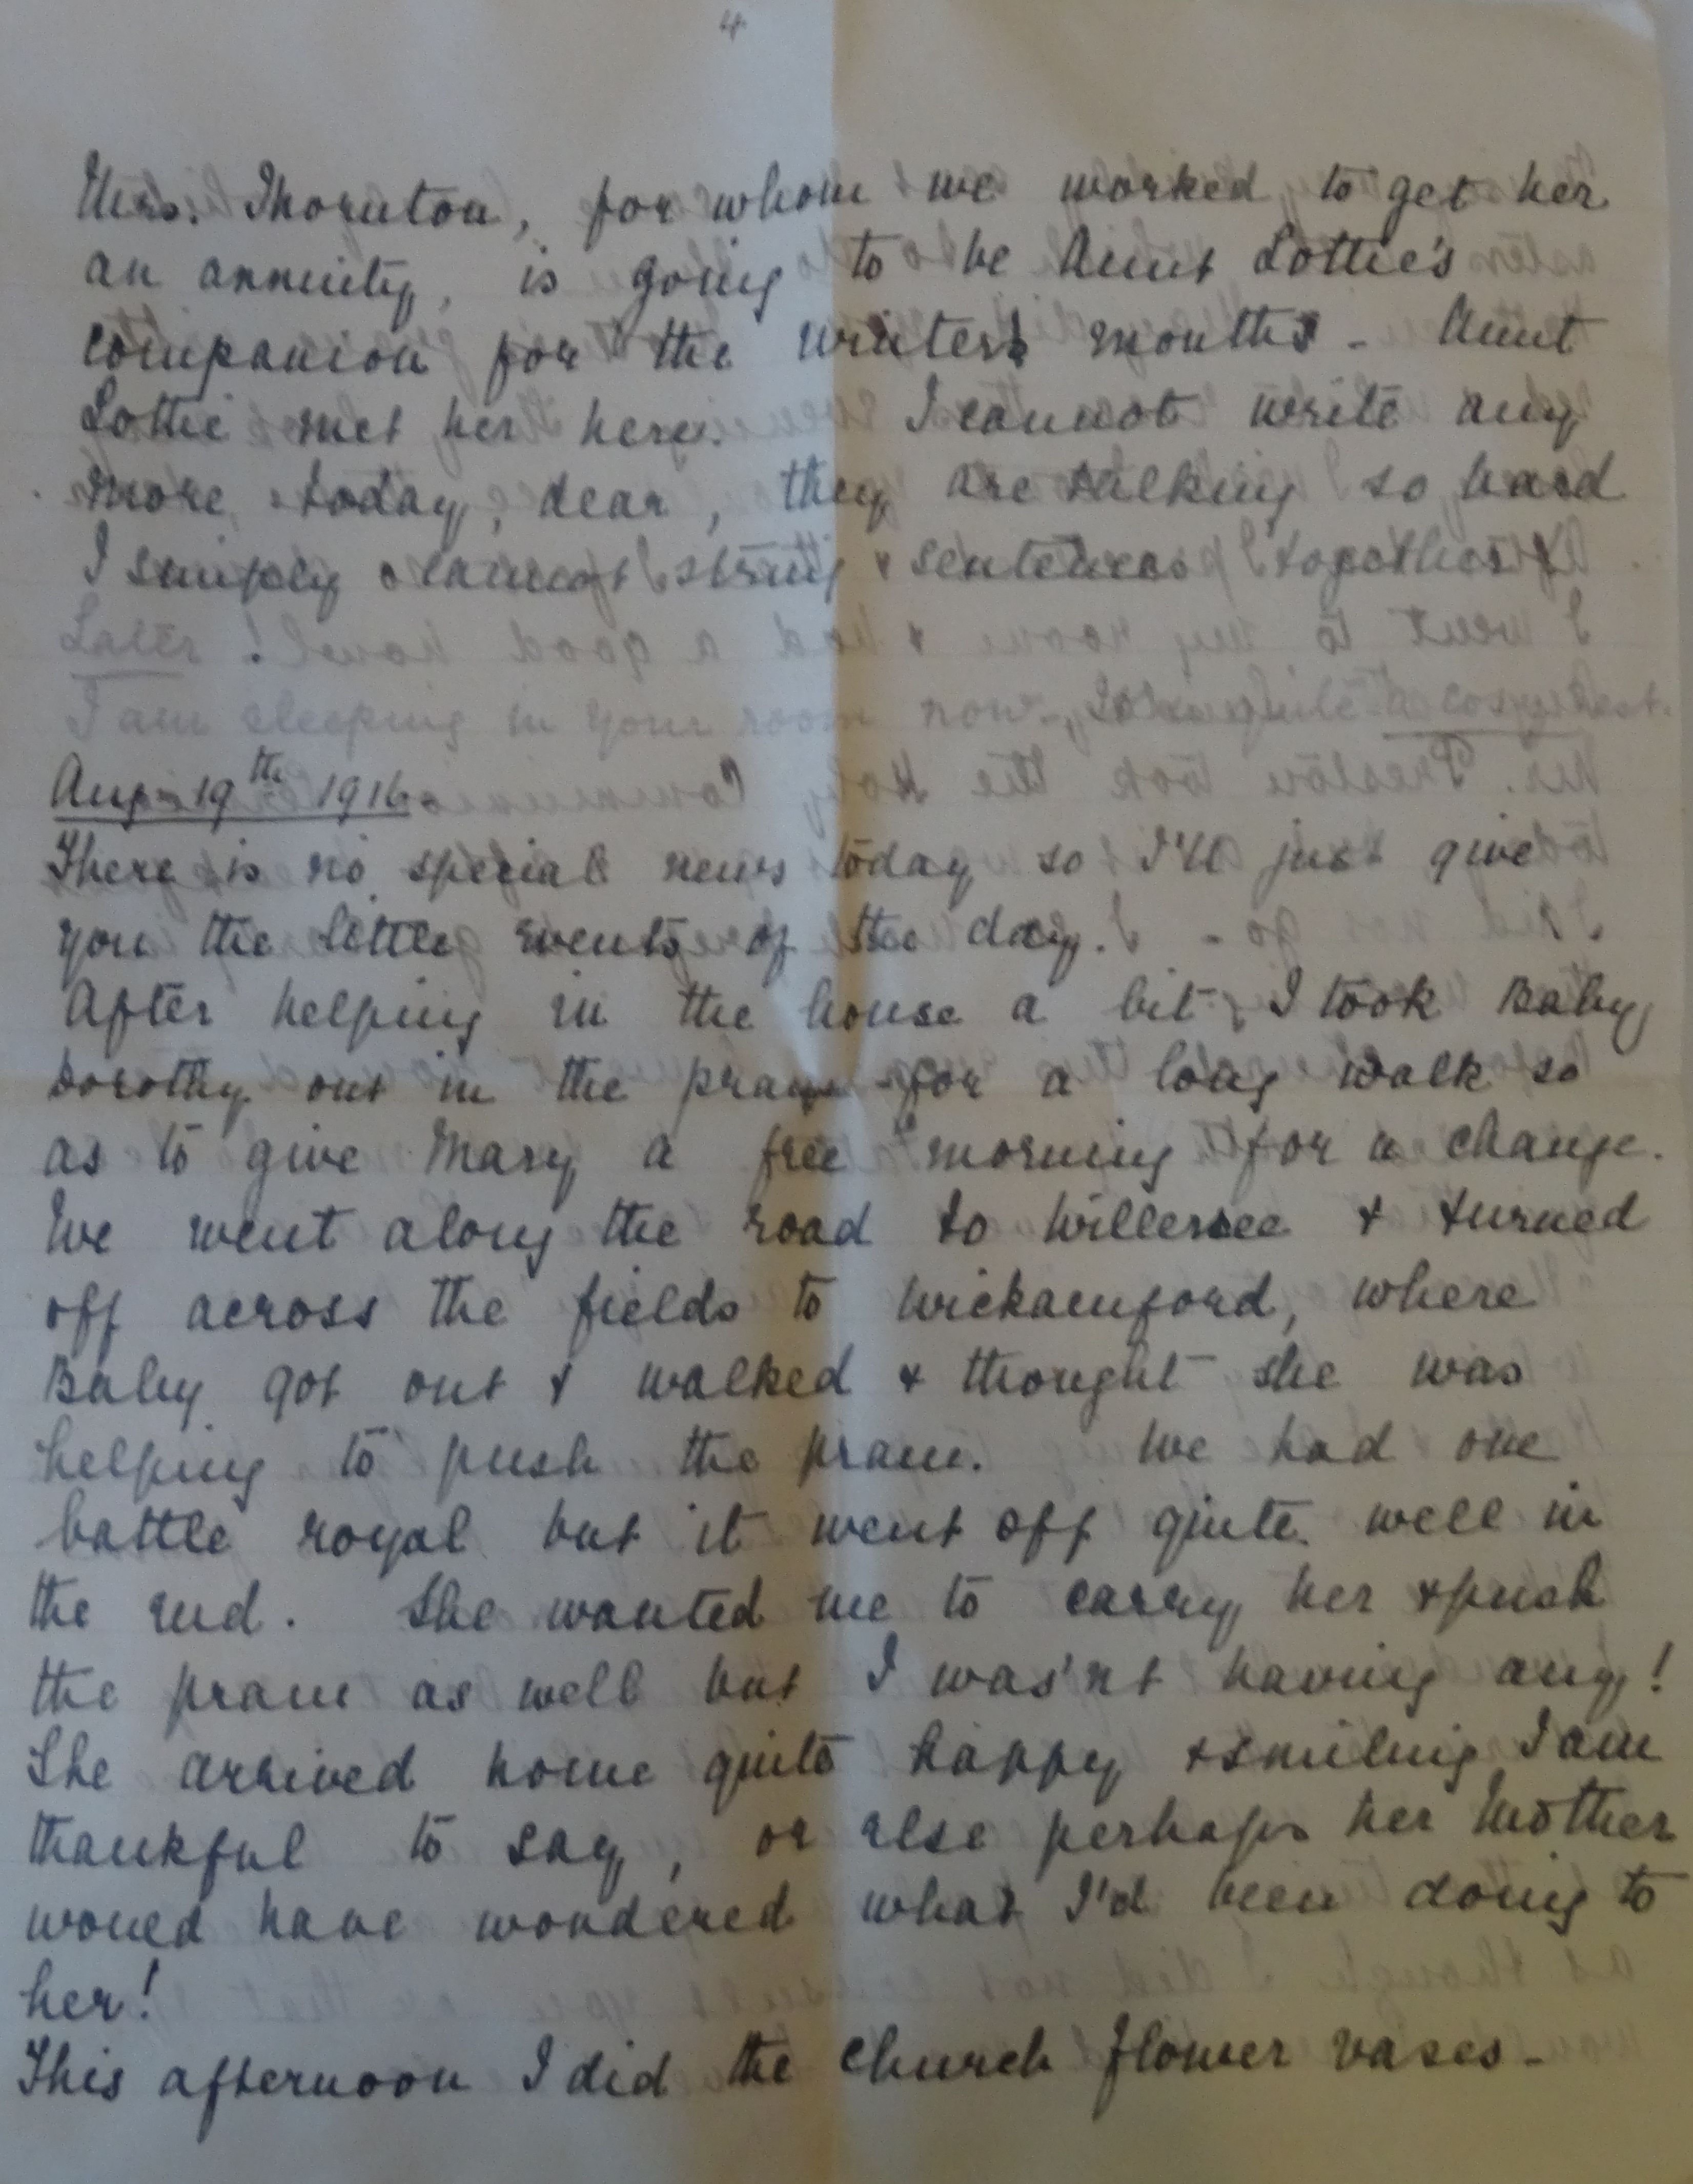 4
Mrs. Thornton, for whom we worked to get her
an annuity, is going to be Aunt Lottie's
companion for the winter months - Aunt
Lottie met her here. I cannot write any
more today, dear, they are talking so hard
I simply cannot string sentences together
Later
I am sleeping in your room now, quite a cosy nest.
Aug 19th 1916.
There is no special news today so I'll just give
you the little events of the day.
After helping in the house a bit, I took Baby
Dorothy out in the pram for a long walk so
as to give Mary a free morning for a change.
We went along the road to Willersee & turned
off across the fields to Wickamford, where
Baby got out & walked & thought she was
helping to push the pram. We had one
battle royal but it went off quite well in
the end. She wanted me to carry her & push
the pram as well but I was'nt having any!
She arrived home quite happy & smiling I am
thankful to say, or else perhaps her Mother
would have wondered what I'd been doing to
her!
This afternoon I did the church flower vases -